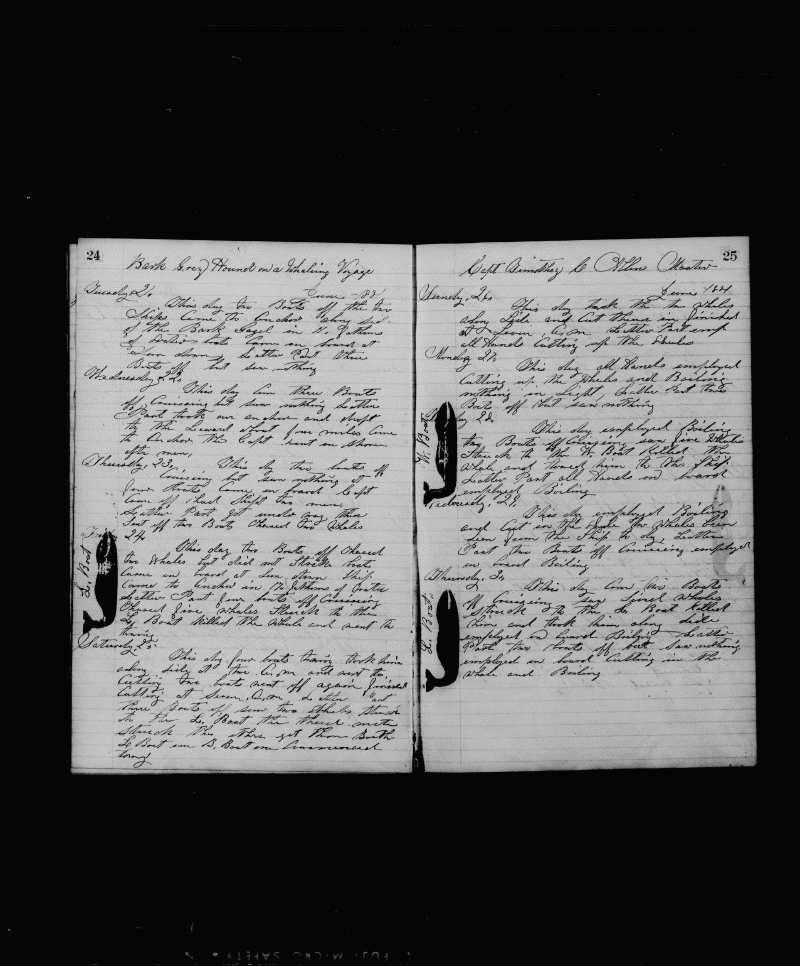 24
Bark Grey Hound on a Whaling Voyage
Tuesday 21. June 188
This day two Boats off the two
Ships Came to Anchor along side
of the Bark in 11 fathoms
of Water boats Came on board at
Sun down Latter Part three
Boats off but seen nothing
Wednesday 22.
This day Con three Boats
off Cruising but seen nothing Latter
Part took our anchor and
to the Leward about four miles Came
to Anchor the Capt went on Shore
after men,
Thursday, 23. This day two boats off
Cruising but seen nothing at
four Boats Came on board Capt
Came off had Shipt two men,
Latter Part got under way then
Sent off two Boats Chased two Whales
24.
This day two Boats off Chased
two Whales but did not Struck boats
Came on board at Sun down Ship
Came to Anchor in 12 fathoms of Water
Latter Part four boats off Cruising
Chased five whales Struck to them
L. Boat killed the whale and went to
towing
L. Boat
Saturday 25.
This day four boats towing took him
along side at two and went to
Cutting two boats went off again finished
Cutting at Seven Latter Part
three Boats off seen two Whales Struck
to the L. Boat the third mate
Struck the other got them Both
L. Boat one B. Boat one Commenced
towing
25
Capt Timothy C Allen Master
Sunday, 26. June 1884
This day took the two Whales
along Side and Cut them in finished
at Seven Latter Part emp
all Hands Cutting up the Whales
Monday 27.
This day all Hands employed
Cutting up the Whales and Boiling
nothing in Sight, Latter Part two
Boats off but saw nothing
28.
This day employed Boiling
two Boats off Cruising seen five Whales
Struck to the W. Boat Killed the
Whale and towed him to the Ship
Latter Part all Hands on board
employed Boiling
W. Boat
Wednesday, 29.
This day employed Boiling
and Cut in the Whale no Whales been
seen from the Ship to day, Latter
Part two Boats off Cruising employed
on board Boiling
Thursday, 30
This day Com two Boats
off Cruising Saw Several Whales
Struck to the L. Boat Killed
him and took him along side
employed on board Boiling Latter
Part two boats off but saw nothing
employed on board Cutting in the
whale and Boiling
L. Boat.